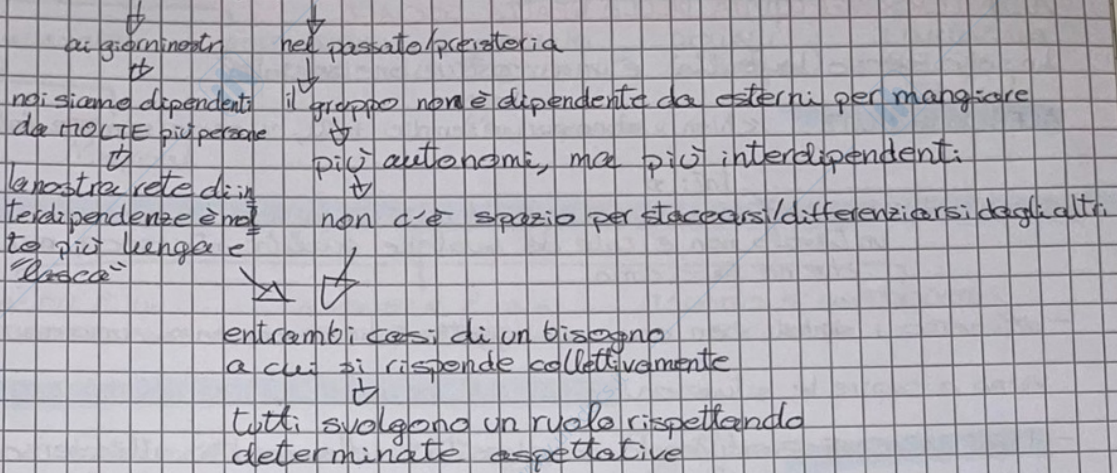 ai giorni nostri
noi siamo dipendenti
da MOLTE più persone
la nostra rete di in
terdipendenze è mol
to più lunga e
"lasca"
nel passato/preistoria
il gruppo non è dipendente da esterni per mangiare
più autonomi, ma più interdipendenti
non c'è spazio per staccarsi/differenziarsi dagli altri
entrambi casi di un bisogno
a cui si risponde collettivamente
tutti svolgono un ruolo rispettando
determinate aspettative